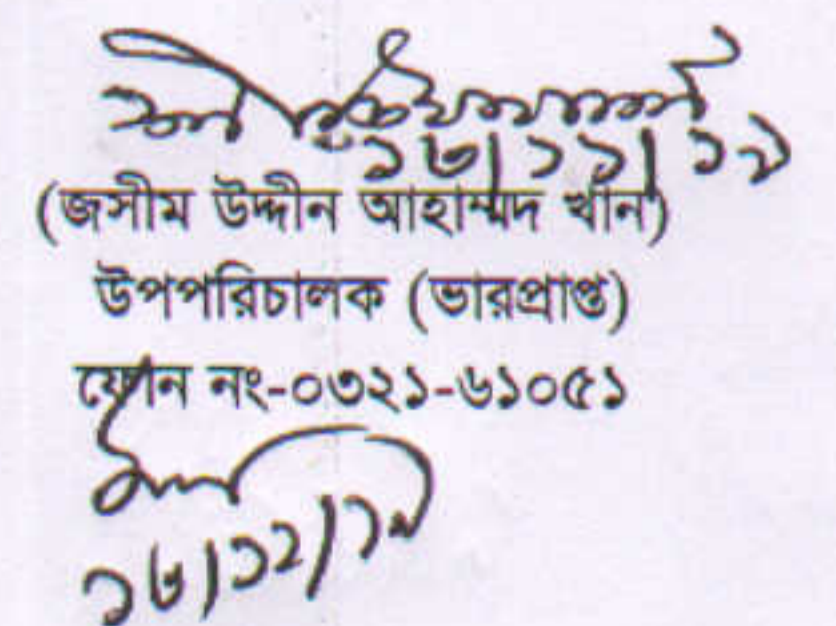 ১৬|১১|১৯
(জসীম উদ্দীন আহাম্মদ খান)
উপপরিচালক (ভারপ্রাপ্ত)
ফোন নং-০৩২১-৬১০৫১
১৬|১২|১৯